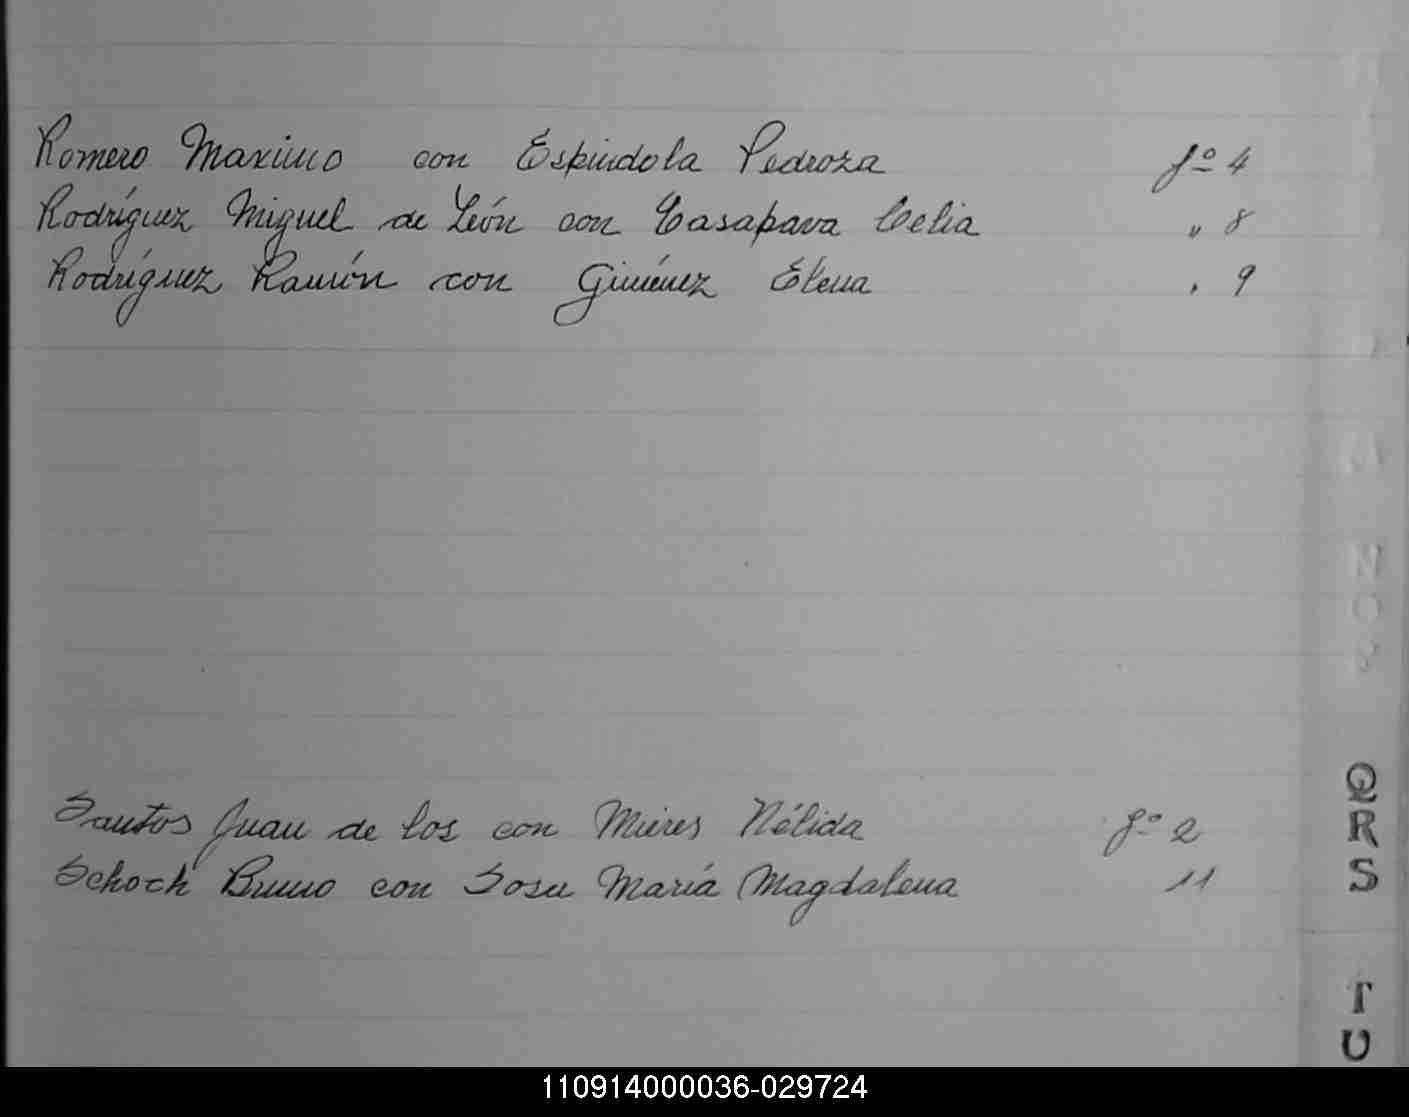 Romero Maximo con Espindola Pedroza fº 4
Rodríguez Miguel de León con Casapava Celia " 8
Rodríguez Ramón con Giménez Elena " 9
Santos Juan de los con Mieres Nélida fº 2
Schoch Bruno con Sosa María Magdalena 11
Q
R
S
T
U
110914000036-029724